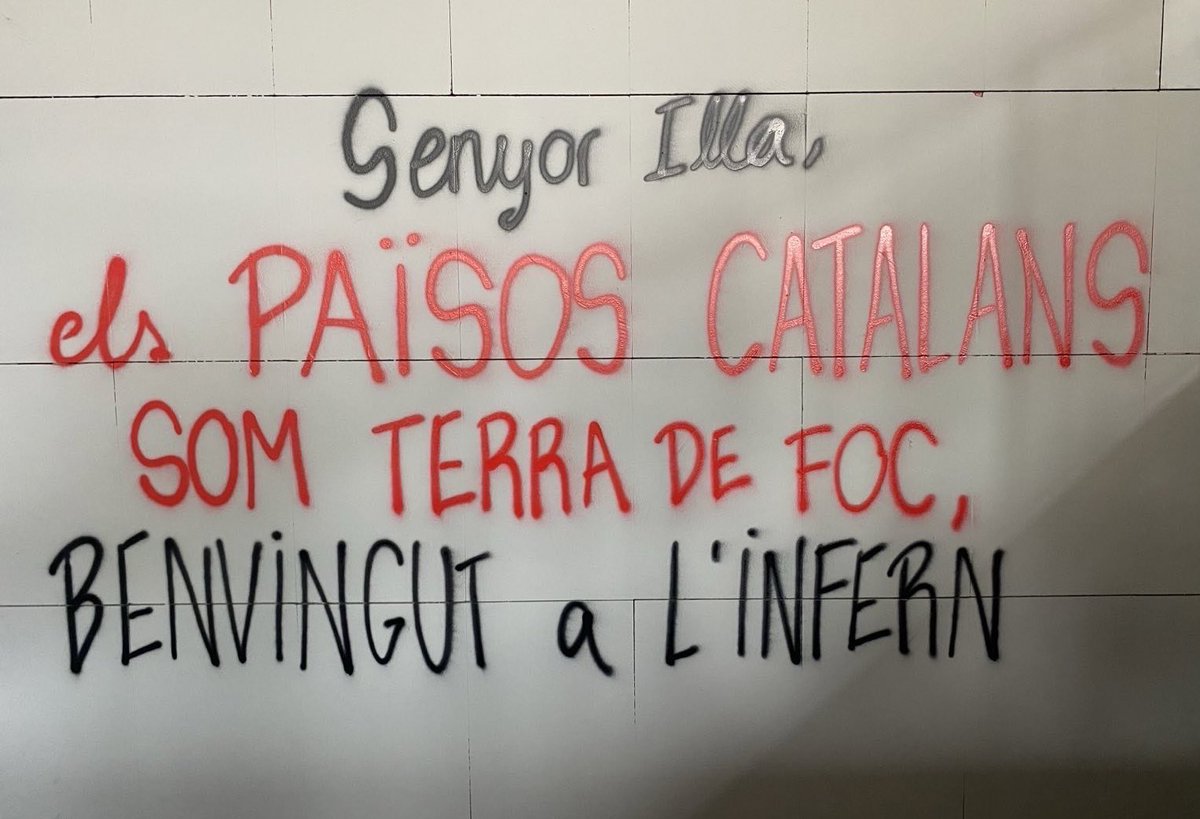 Senyor Illa,
els PAÏSOS CATALANS
SOM TERRA DE FOC,
BENVINGUT a L'INFERN